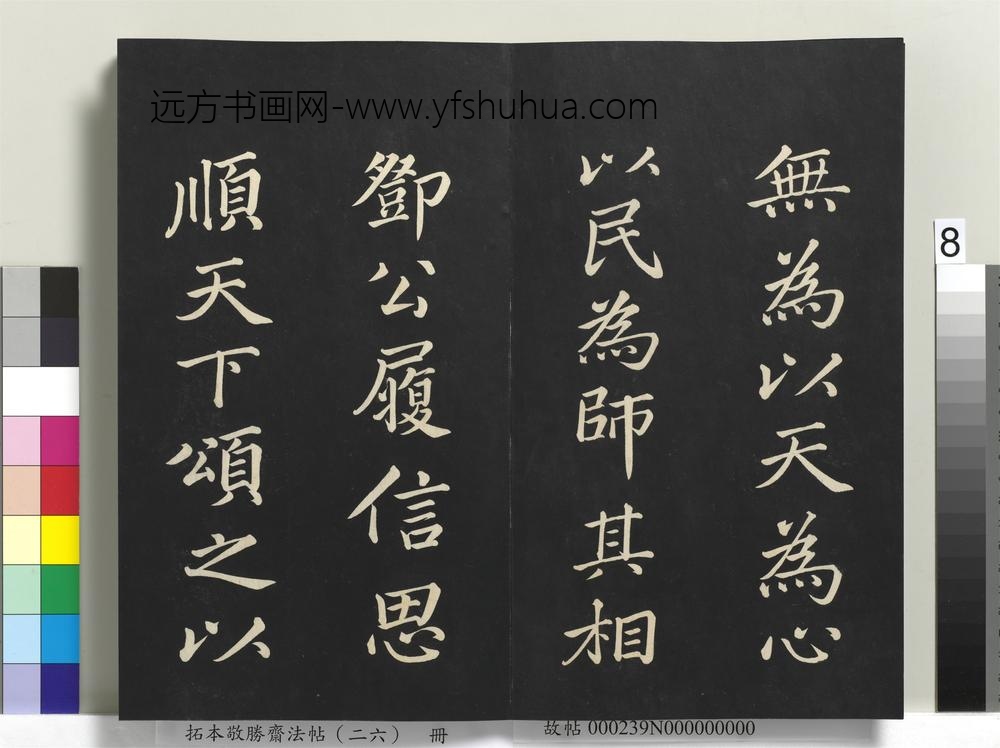 远方书画网-www.yfshuhua.com
無為以天為心
以民為師其相
鄧公履信思
順天下頌之以
8
拓本敬勝齋法帖（二六） 冊
故帖 000239N000000000